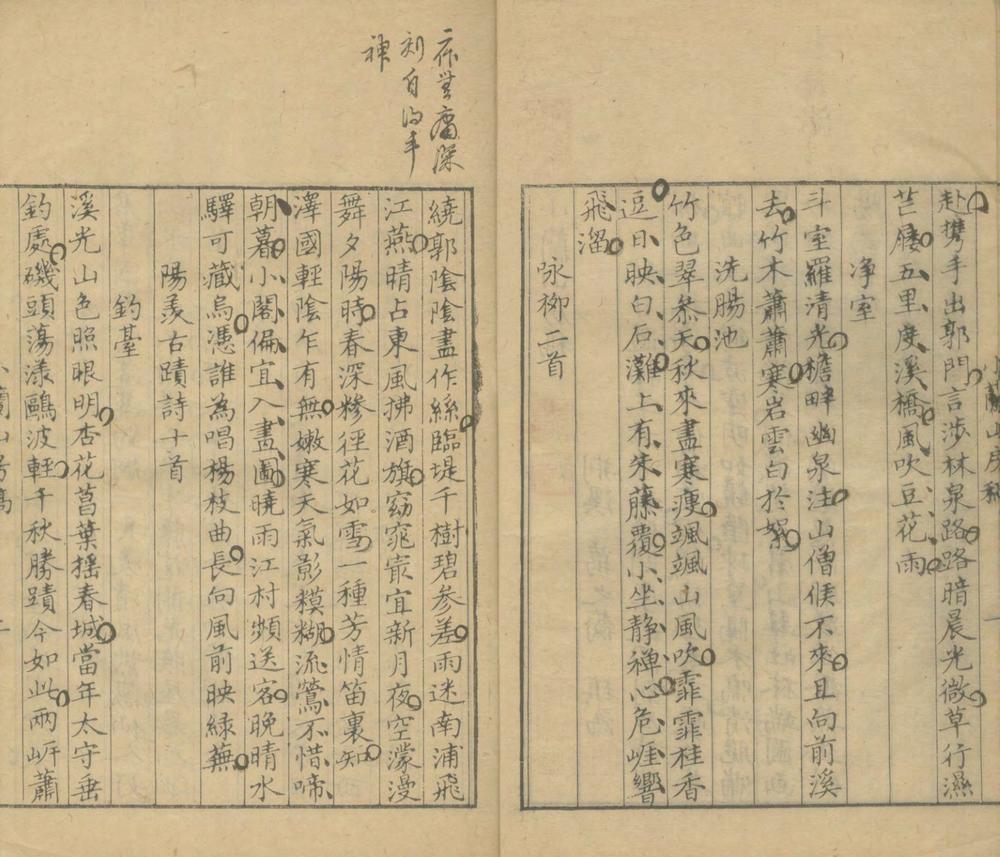 赴携手出郭門言涉林泉路路暗晨光微草行濕
芒屩五里度溪橋風吹豆花雨
净室
斗室羅清光檐畔幽泉注山僧候不來且向前溪
去竹木蕭蕭寒岩雲白於絮
洗腸池
竹色翠叅天秋來盡寒瘦颯颯山風吹霏霏桂香
逗日映白石灘上有朱藤覆小坐静禅心危崕響
飛溜
咏柳二首
繞郭陰陰盡作絲臨堤千樹碧參差雨迷南浦飛
江燕晴占東風拂酒旗窈窕冣宜新月夜空濛漫
舞夕陽時春深糝徑花如雪一種芳情笛裏知
澤國輕陰乍有無嫩寒天氣影糢糊流鶯不惜啼
朝暮小閣偏宜入畫圖曉雨江村頻送客晚晴水
驛可藏烏憑誰為唱楊枝曲長向風前映緑蕪
陽羡古蹟詩十首
釣臺
溪光山色照眼明杏花菖葉揺春城當年太守垂
釣處磯頭蕩漾鷗波輕千秋勝蹟今如此兩岍蕭